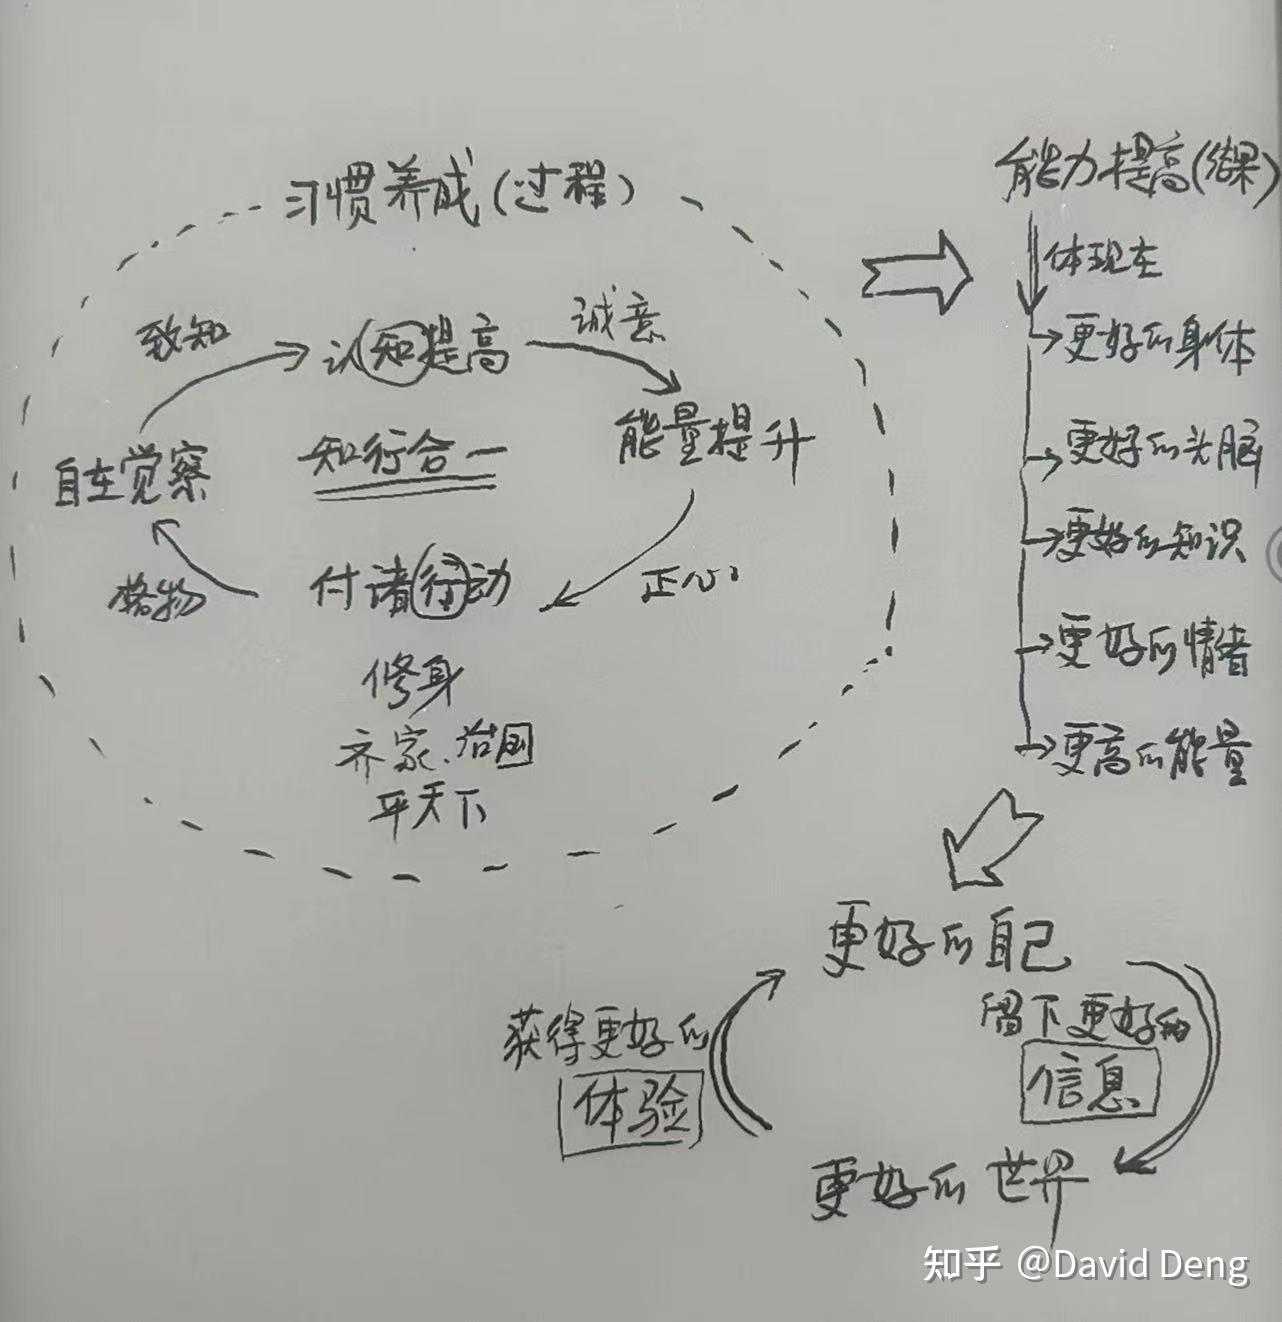 习惯养成(过程)
致知
认知提高
诚意
自在觉察
知行合一
能量提升
格物
付诸行动
正心
修身
齐家、治国
平天下
能力提高(结果)
体现在
更好的身体
更好的头脑
更好的知识
更好的情绪
更高的能量
更好的自己
获得更好的
体验
留下更好的
信息
更好的世界
知乎 @David Deng